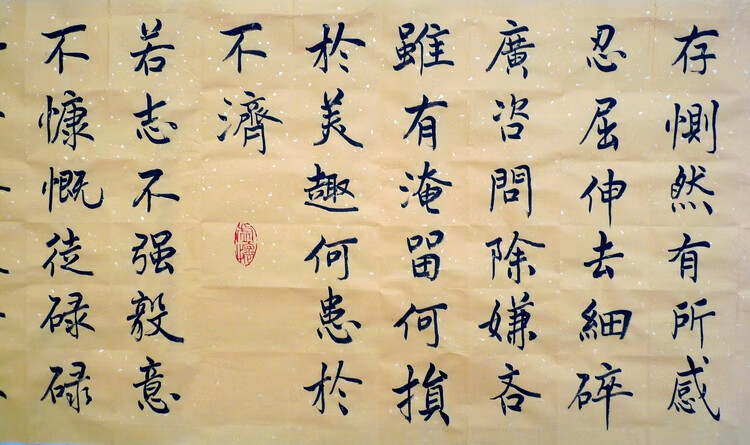 存惻然有所感
忍屈伸去細碎
廣咨問除嫌吝
雖有淹留何損
於美趣何患於
不濟
若志不强毅意
不慷慨徒碌碌